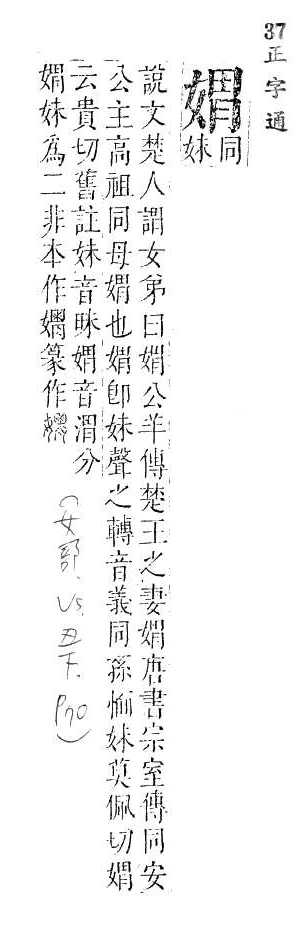 37 正字通
媦
同妹
說文楚人謂女弟曰媦公羊傳楚王之妻媦唐書宗室傳同安
公主高祖同母媦也媦卽妹聲之轉音義同孫愐妹莫佩切媦
云貴切舊註妹音眛媦音渭分
媦妹爲二非本作㜇篆作
(女部. Vs. 丑下. P70)